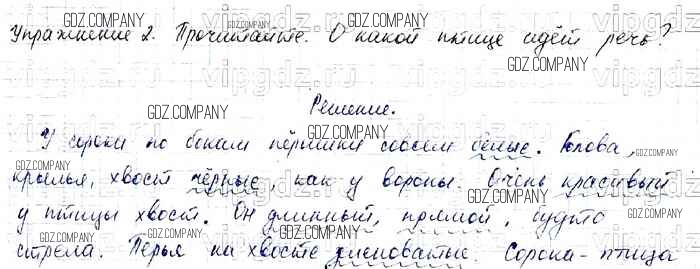 Упражнение 2. Прочитайте. О какой птице идёт речь?
Решение.
У сороки по бокам пёрышки совсем белые. Голова,
крылья, хвост чёрные, как у вороны. Очень красивый
у птицы хвост. Он длинный, прямой, будто
стрела. Перья на хвосте зеленоватые. Сорока - птица
GDZ.COMPANY
GDZ.COMPANY
GDZ.COMPANY
GDZ.COMPANY
GDZ.COMPANY
GDZ.COMPANY
GDZ.COMPANY
GDZ.COMPANY
GDZ.COMPANY
GDZ.COMPANY
GDZ.COMPANY
GDZ.COMPANY
GDZ.COMPANY
GDZ.COMPANY
vipgdz.ru